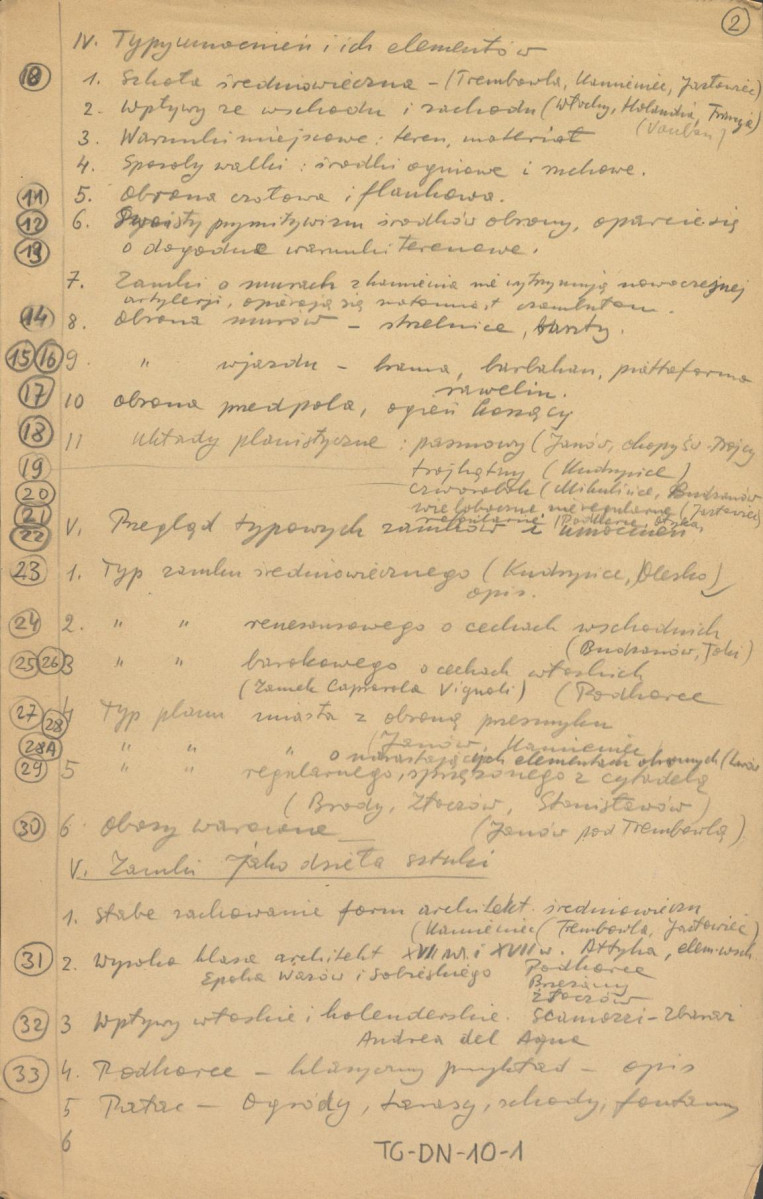 2
IV. Typy umocnień i ich elementów
10 1. Szkoła średniowieczna - (Trembowla, Kamieniec, Jazłowiec)
2. Wpływy ze wschodu i zachodu (Włochy, Holandia, Francja)
(Vauban)
3. Warunki miejscowe: teren, materiał
4. Sposoby walki: środki ogniowe i ruchowe.
11 5. Obrona czołowa i flankowa.
12 6. Swoisty prymitywizm środków obrony, oparcie się
13 o dogodne warunki terenowe.
7. Zamki o murach z kamienia nie wytrzymują nowoczesnej
artylerji, opierają się natomiast
14 8. Obrona murów - strzelnice, baszty.
15 16 9. " wjazdu - brama, barbakan, piattaforma
rawelin.
17 10 obrona przedpola, ogień koszący
18 11 układy planistyczne: pasmowy (Janów, Okopy Św. Trójcy
19 trójkątny (Kudryńce)
20 czworobok (Mikulińce, Budzanów
21 wieloboczne nieregularne (Jazłowiec)
regularne (Podhorce,
22 V. Przegląd typowych zamków i umocnień
23 1. Typ zamku średniowiecznego (Kudryńce, Olesko)
opis.
24 2. " " renesansowego o cechach wschodnich
(Budzanów, Toki)
25 26 3 " " barokowego o cechach włoskich
(Zamek Caprarola Vignoli) (Podhorce
27 28 4 Typ planu miasta z obroną przesmyku
(Janów, Kamieniec
28A " " " o narastających elementach obronnych (Lwów
29 5 " " regularnego, sprzężonego z cytadelą
(Brody, Złoczów, Stanisławów)
30 6. Obozy warowne (Janów pod Trembowlą)
V. Zamki jako dzieła sztuki
1. Słabe zachowanie form architekt. średniowiecza
(Kamieniec (Trembowla, Jazłowiec)
31 2. Wysoka klasa architekt XVI w. i XVII w. Attyka, elem. wsch.
Epoka Wazów i Sobieskiego Podhorce
Brzeżany
Złoczów
32 3 Wpływy włoskie i holenderskie. Scamozzi - Zbaraż
Andrea del Aqua
33 4. Podhorce - klasyczny przykład - opis
5 Pałac - Ogródy, tarasy, schody, fontanny
6
TG-DN-10-1